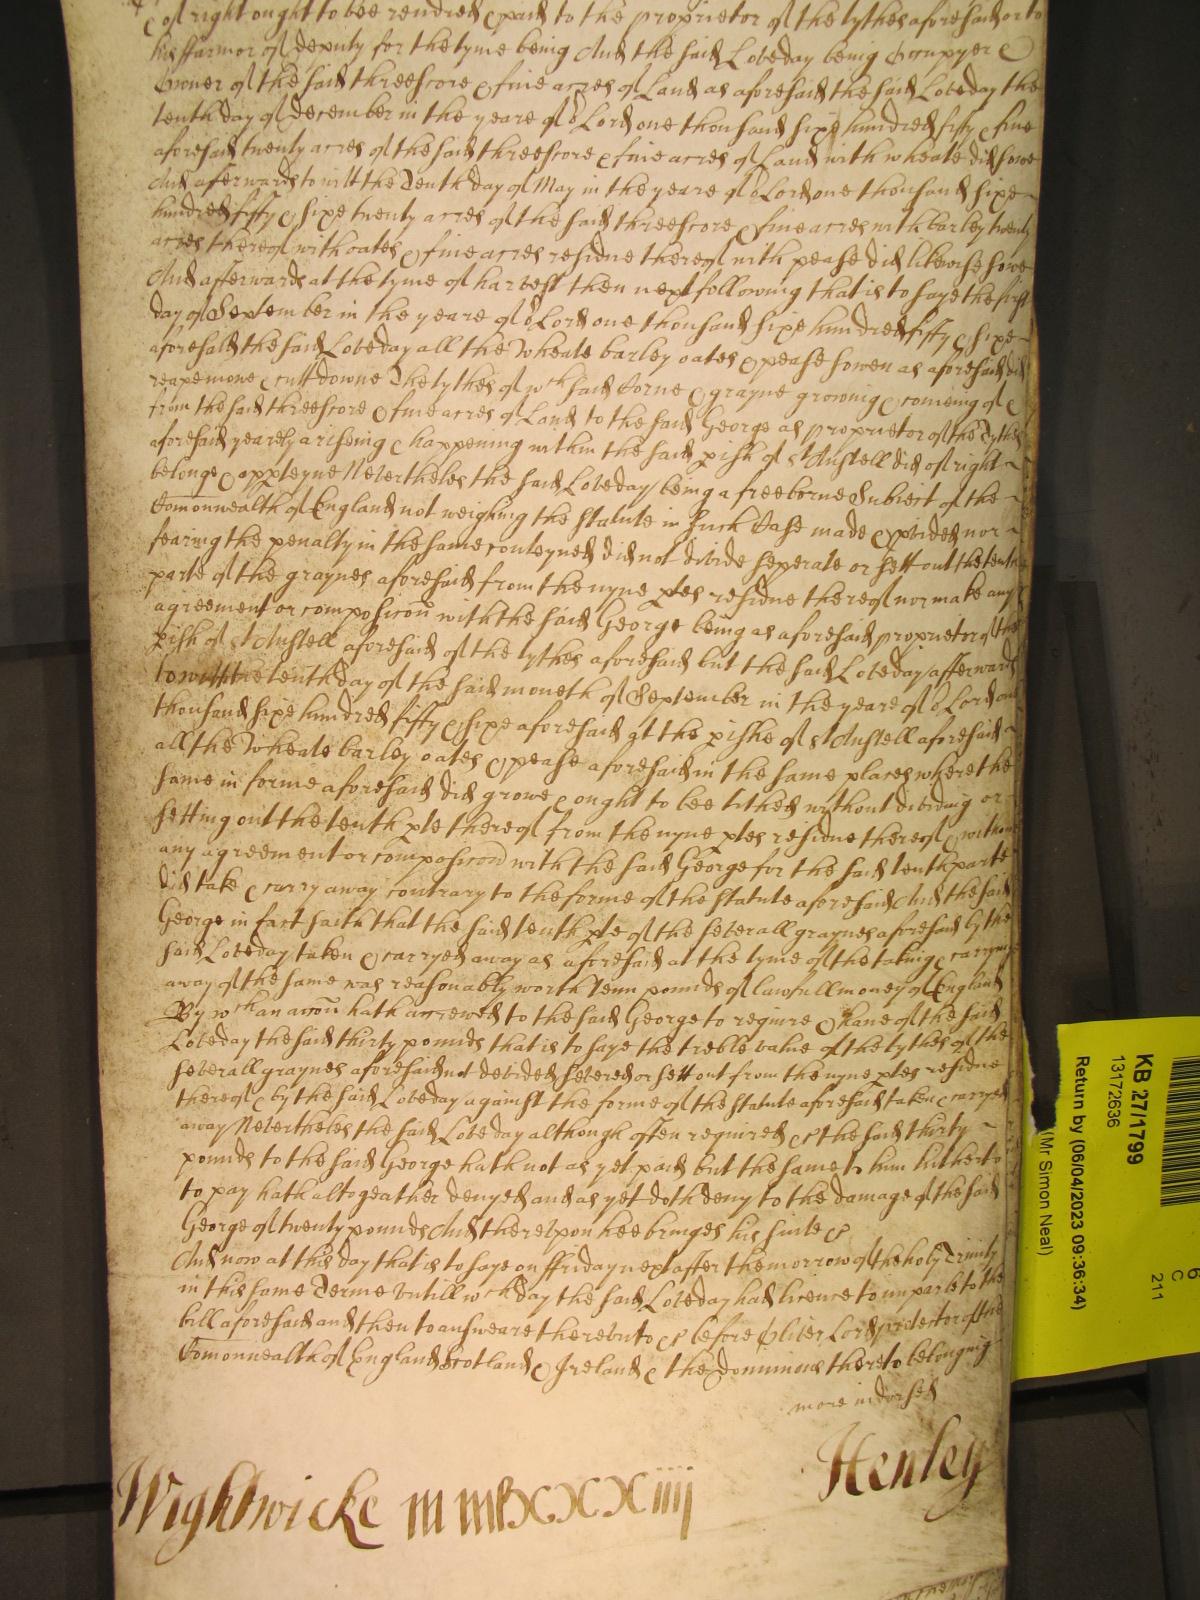 of right ought to bee rendred & paid to the proprietor of the tythes aforesaid or to
his ffarmor or deputy for the tyme being And the said Loveday being Occupyer &
Owner of the said threescore & five acres of Land as aforesaid the said Loveday the
tenth day of December in the yeare of oe Lord one thousand sixe hundred fifty & five
aforesaid twenty acres of the said threescore & five acres of Land with wheate did sowe
And afterwards to witt the Tenth day of May in the yeare of oe Lord one thousand sixe
hundred fifty & sixe twenty acres of the said threescore & five acres with barley twenty
acres thereof with oates & five acres residue thereof with pease did likewise sowe
And afterwards at the tyme of harvest then next following that is to saye the first
day of September in the yeare of oe Lord one thousand sixe hundred fifty & sixe
aforesaid the said Loveday all the Wheate barley oates & pease sowen as aforesaid did
reape mowe & cutt downe The tythes of wch said Corne & grayne growing & comeing of &
from the said threescore & five acres of Land to the said George as proprietor of the Tythes
aforesaid yearely ariseing & happening within the said pish of St Austell did of right
belonge & apperteyne Nevertheles the said Loveday being a freeborne Subiect of the
Comonwealth of England not weighing the statute in such Case made & pvided nor
fearing the penalty in the same conteyned did not divide seperate or sett out the tenth
parte of the graynes aforesaid from the nyne ptes residue thereof nor make any
agreement or composicon with the said George being as aforesaid proprietor of the
pish of St Austell aforesaid of the tythes aforesaid but the said Loveday afterwards
to witt the tenth day of the said moneth of September in the yeare of oe Lord one
thousand sixe hundred fiffty & sixe aforesaid at the pishe of St Austell aforesaid
all the Wheate barley oates & pease aforesaid in the same places where the
same in forme aforesaid did growe & ought to bee tithed without dividing or
setting out the tenth pte thereof from the nyne ptes residue thereof & without
any agreement or composicon with the said George for the said tenth parte
did take & carry away contrary to the forme of the statute aforesaid And the said
George in fact saith that the said tenth pte of the severall graynes aforesaid by the
said Loveday taken & carryed away as aforesaid at the tyme of the taking & carrying
away of the same was reasonably worth Tenn pounds of lawfull money of England
By wch an accon hath accrewed to the said George to require & have of the said
Loveday the said thirty pounds that is to saye the treble value of the tythes of the
severall graynes aforesaid not devided severed or sett out from the nyne ptes residue
thereof & by the said Loveday against the forme of the statute aforesaid taken & carryed
away Nevertheles the said Loveday although often required &c the said thirty
pounds to the said George hath not as yet paid but the same to him hitherto
to pay hath altogeather denyed and as yet doth deny to the damage of the said
George of twenty pounds And thereupon hee bringes his suite &c
And now at this day that is to saye on ffriday next after the morrow of the holy Trinity
in this same Terme Untill wch day the said Loveday had licence to imparle to the
bill aforesaid and then to answeare thereunto &c before Oliver Lord ptector of the
Comonwealth of England Scotland & Ireland & the dominions thereto belonging
more indorsed
Wightwicke
Henley
KB 27/1799
13172636
Return by (06/04/2023 09:36:34)
(Mr Simon Neal)
C
211